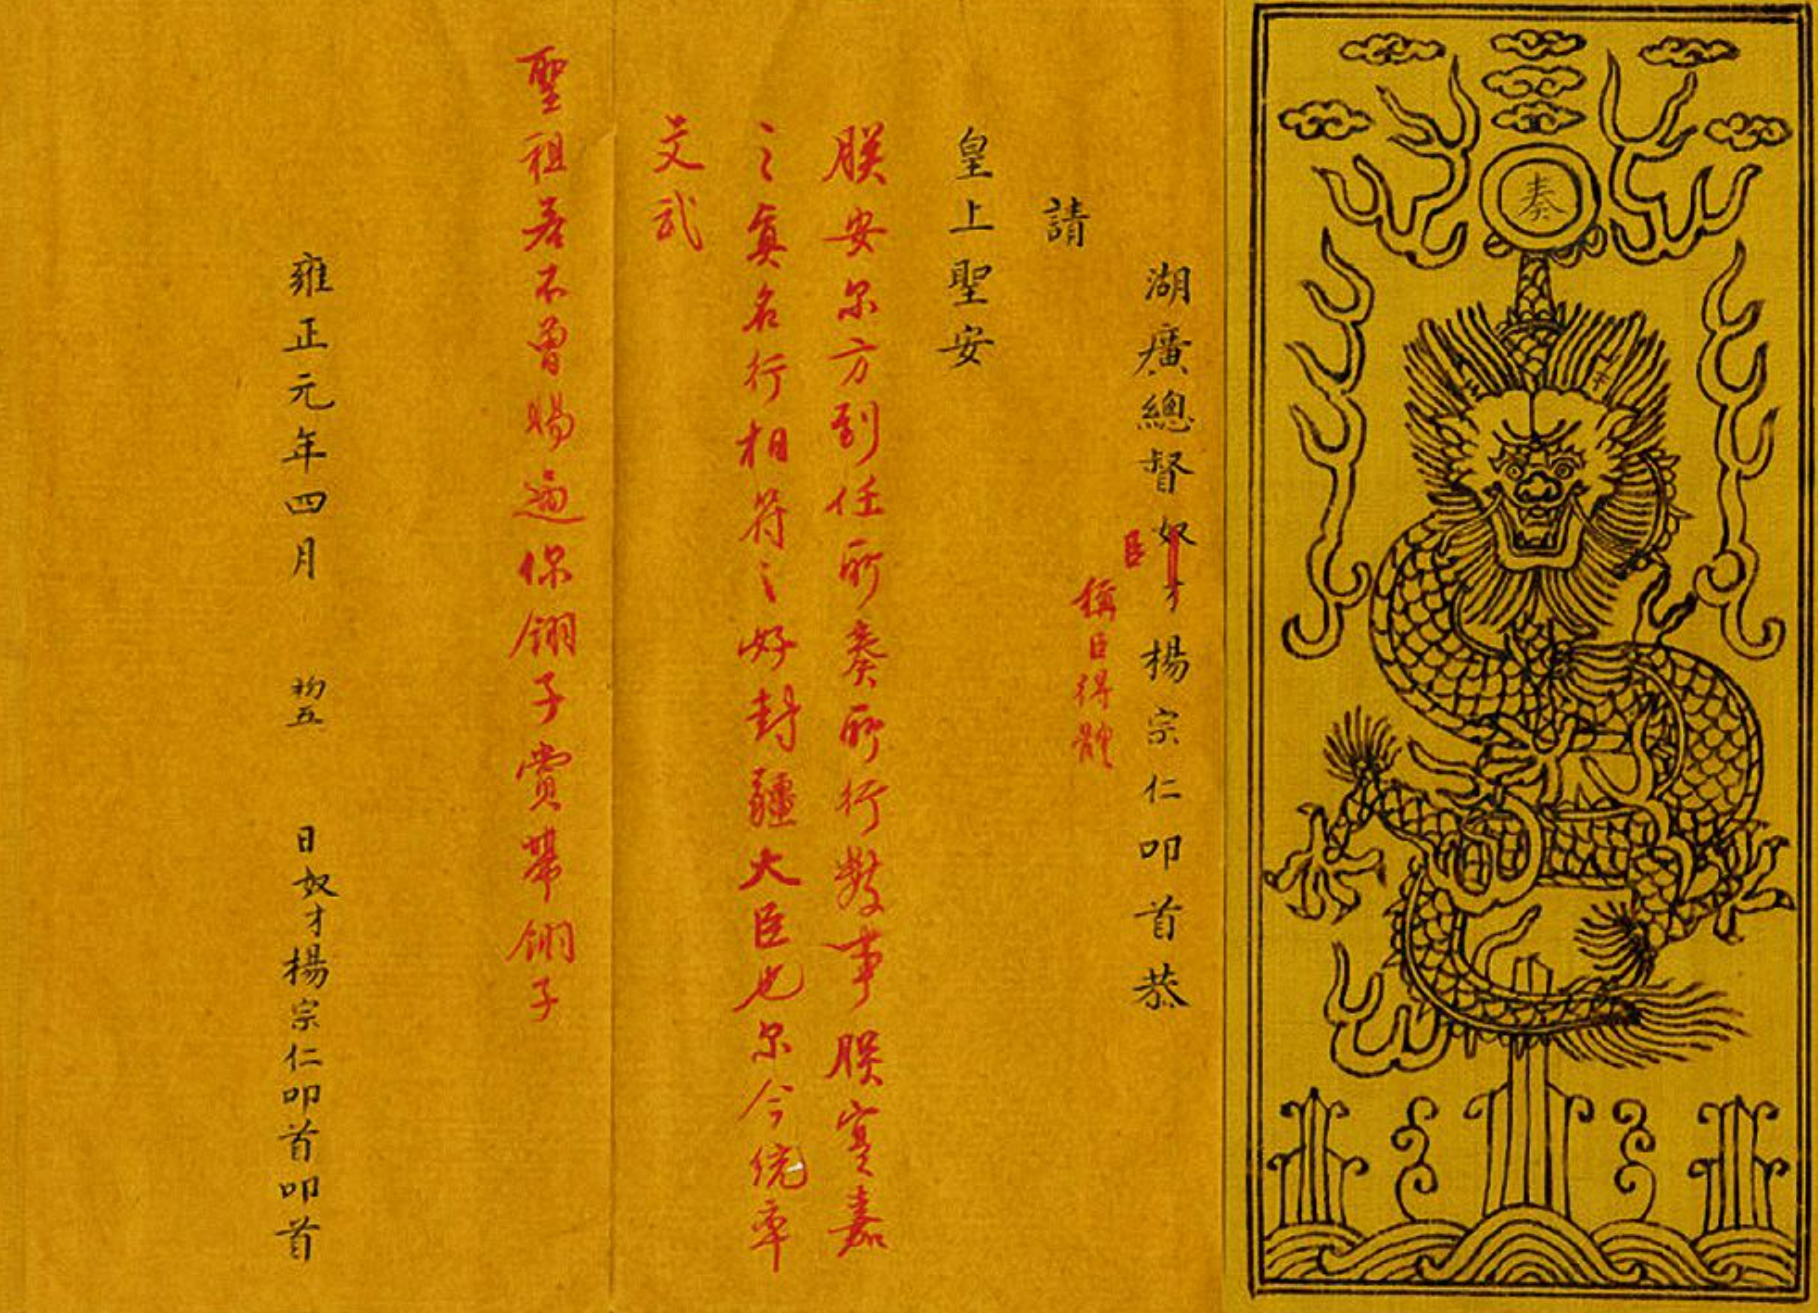 奏
湖廣總督奴才楊宗仁叩首恭
臣
稱臣得體
請
皇上聖安
朕安尔方到任所奏所行數事朕實嘉
之真名行相符之好封疆大臣也尔今統率
文武
聖祖若不曾賜過你翎子賞帶翎子
雍正元年四月初五日奴才楊宗仁叩首叩首